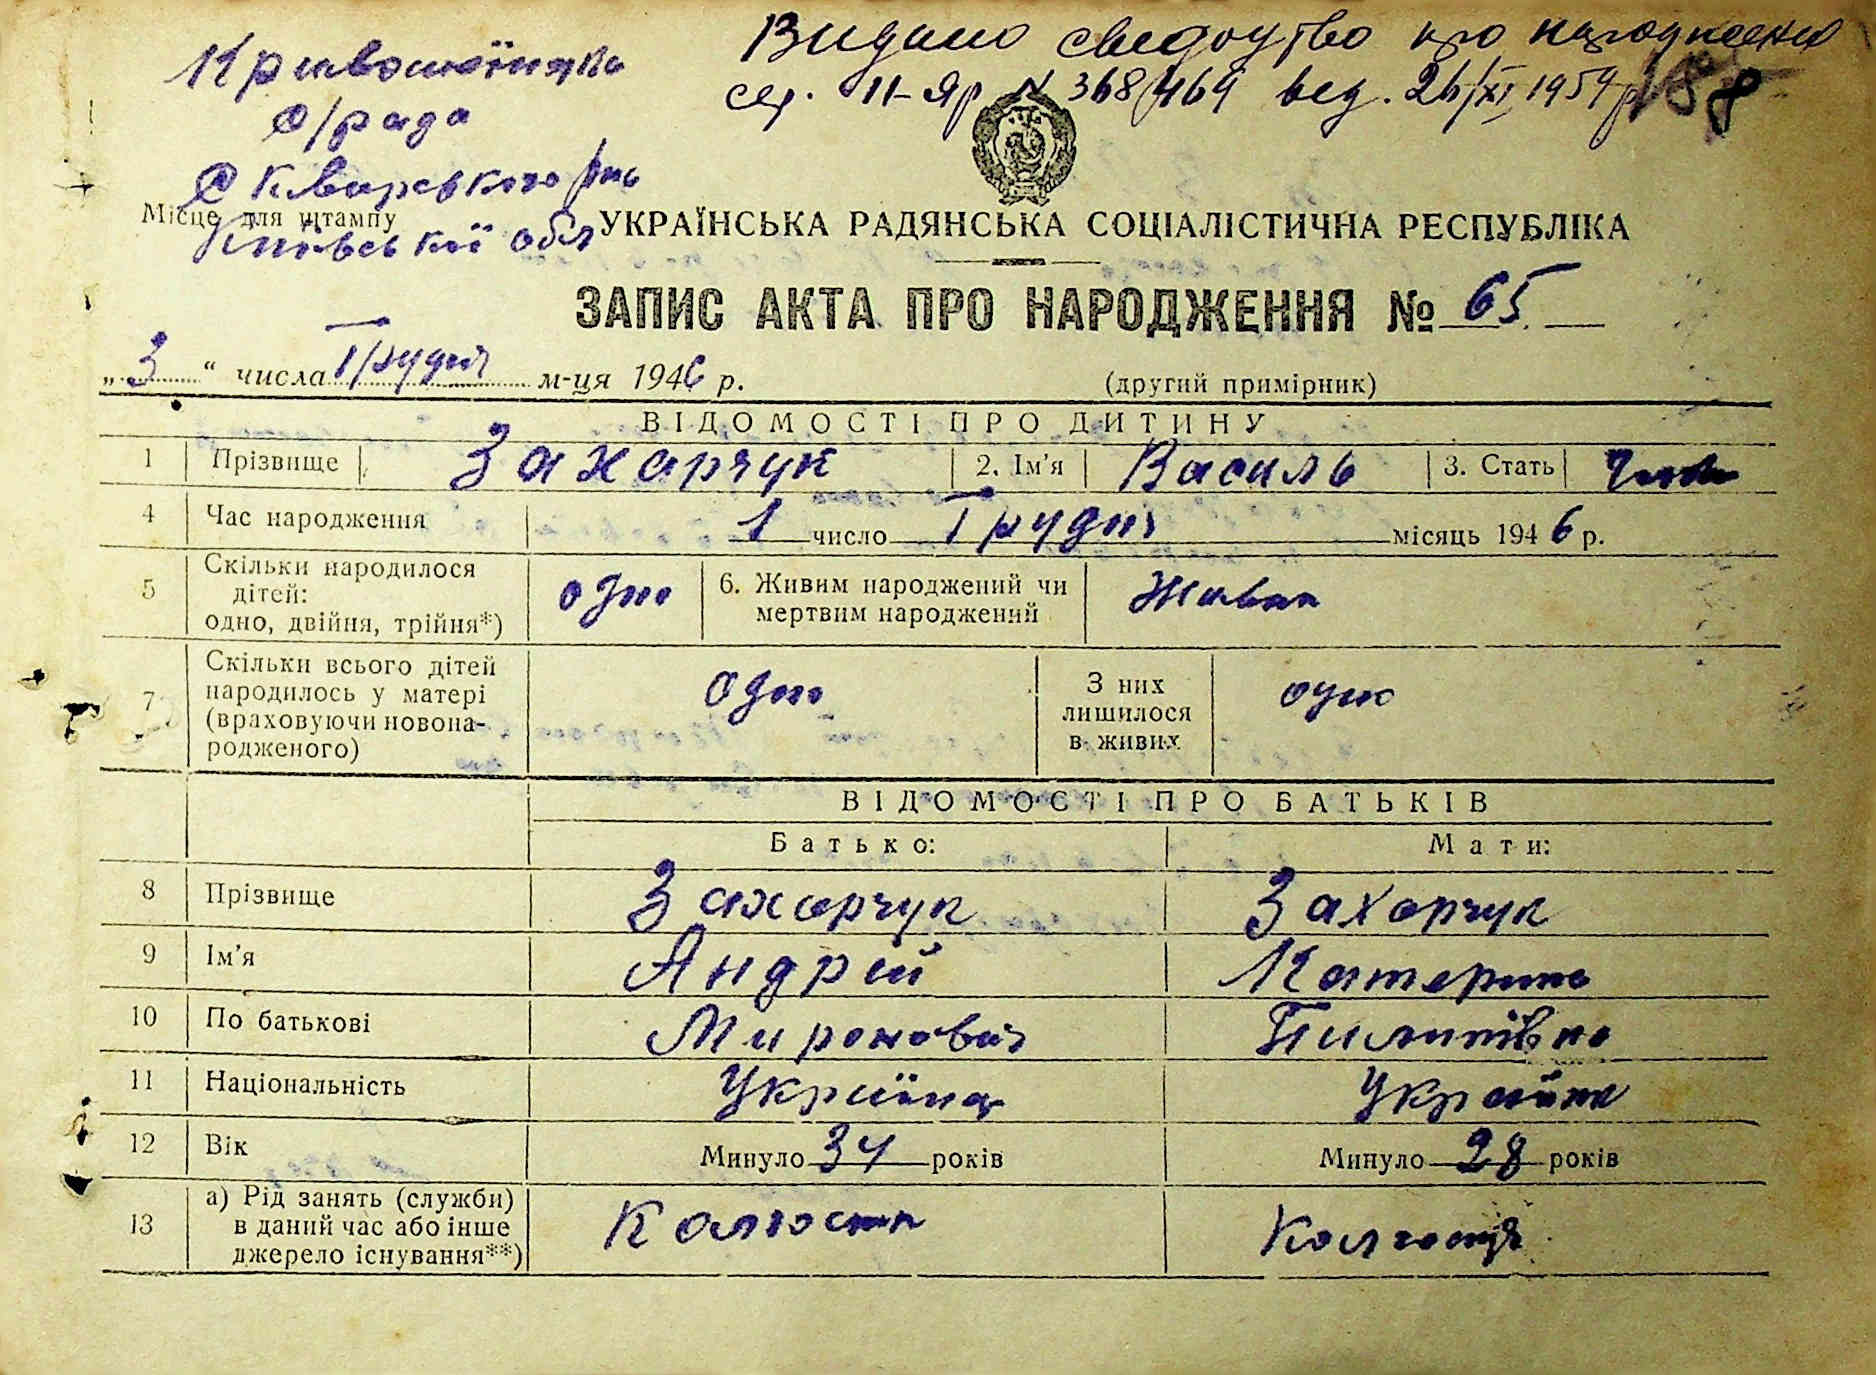 Видано свідоцтво про народження
сер. II-Яр N 368469 від. 26/XI 1954 р
188
Кривошеїнська
с/рада
Сквирського р-ну
Київської обл
Місце для штампу
УКРАЇНСЬКА РАДЯНСЬКА СОЦІАЛІСТИЧНА РЕСПУБЛІКА
ЗАПИС АКТА ПРО НАРОДЖЕННЯ № 65
„3“ числа Грудня м-ця 1946 р.
(другий примірник)
ВІДОМОСТІ ПРО ДИТИНУ
1 Прізвище Захарчук 2. Ім'я Василь 3. Стать
4 Час народження 1 число Грудня місяць 1946 р.
5 Скільки народилося дітей: одно, двійня, трійня*) одно 6. Живим народжений чи мертвим народжений Живим
7 Скільки всього дітей народилось у матері (враховуючи новонародженого) одно З них лишилося в живих одно
ВІДОМОСТІ ПРО БАТЬКІВ
Батько: Мати:
8 Прізвище Захарчук Захарчук
9 Ім'я Андрій Катерина
10 По батькові Миронович Пилипівна
11 Національність Українец Українка
12 Вік Минуло 34 років Минуло 28 років
13 а) Рід занять (служби) в даний час або інше джерело існування**) Колгоспник Колгоспн